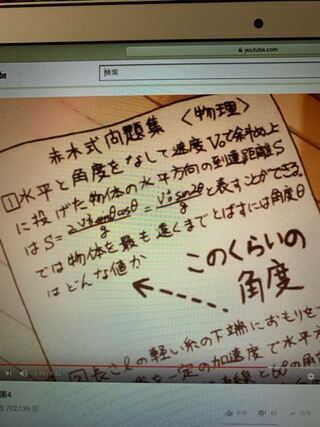 youtube.com
be
検索
赤木式問題集 <物理>
1 水平と角度をなして速度V₀で斜め上
に投げた物体の水平方向の到達距離S
はS=2V₀²sinθcosθ/g=V₀²sin2θ/gと表すことができる。
では物体を最も遠くまでとばすには角度θ
はどんな値か
このくらいの
角度
2 長さℓの軽い糸の下端におもりを
定の加速度で水平
1:19 / 1:42
団4
702,136 回